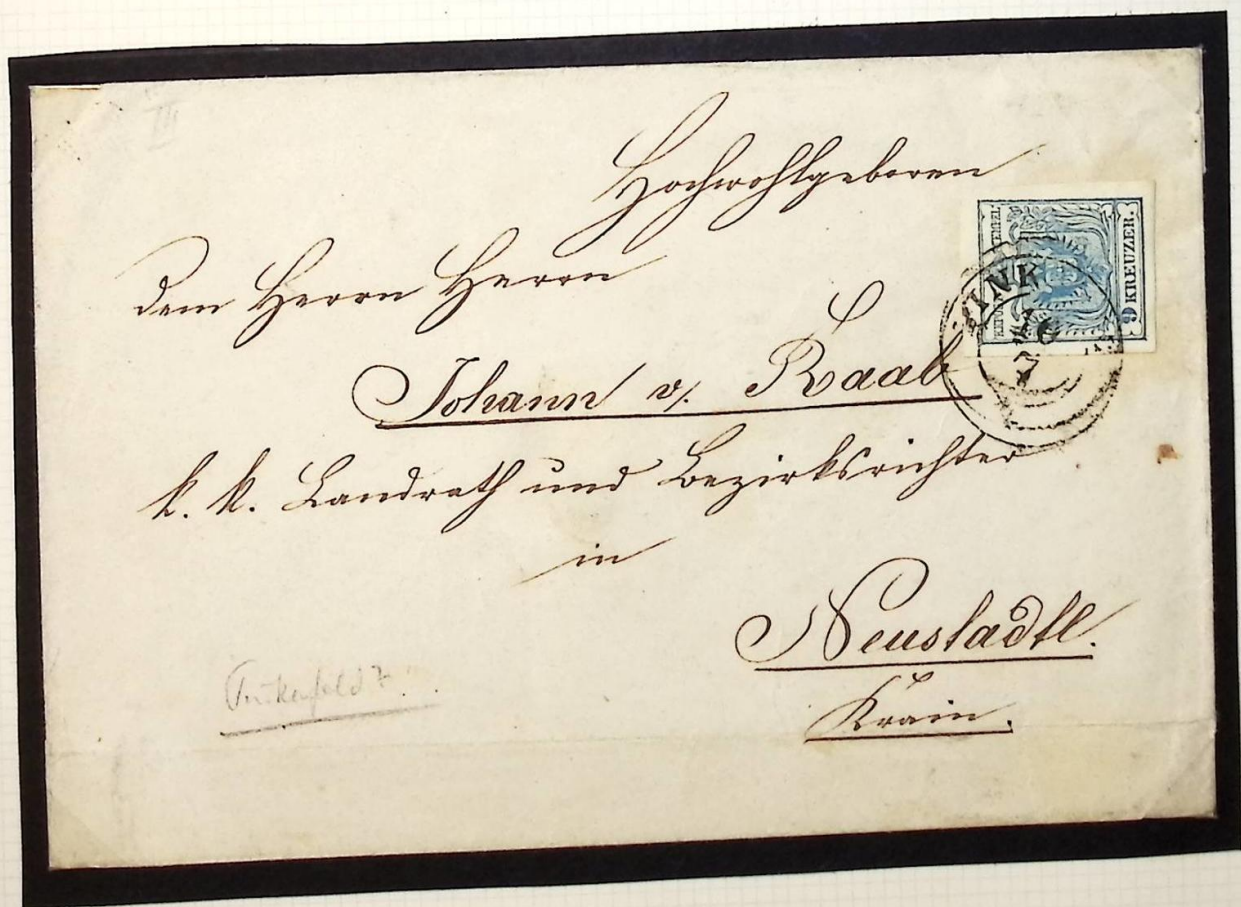 III
Hochwohlgeboren
dem Herrn Herrn
Johann v. Raab
k. k. Landrath und Bezirksrichter
in
Neustadtl.
Krain.
9 KREUZER.
STEMPEL